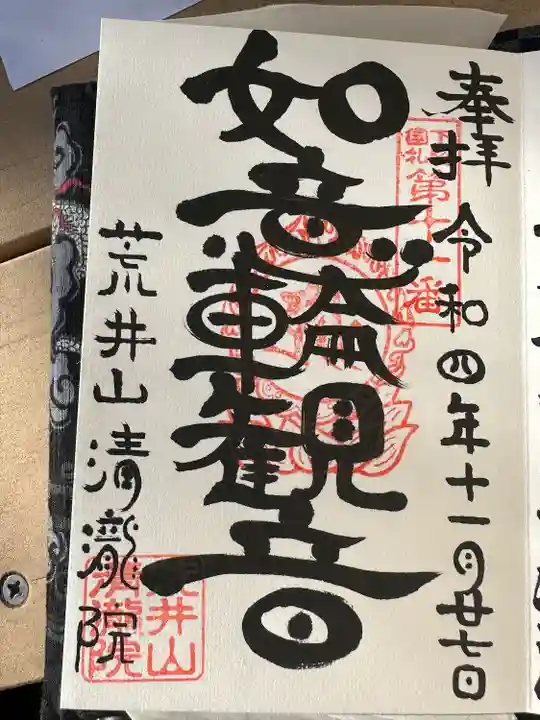 奉拝 令和四年十一月廿七日
第十一番
如意輪観音
荒井山 清瀧院
荒井山
清瀧院